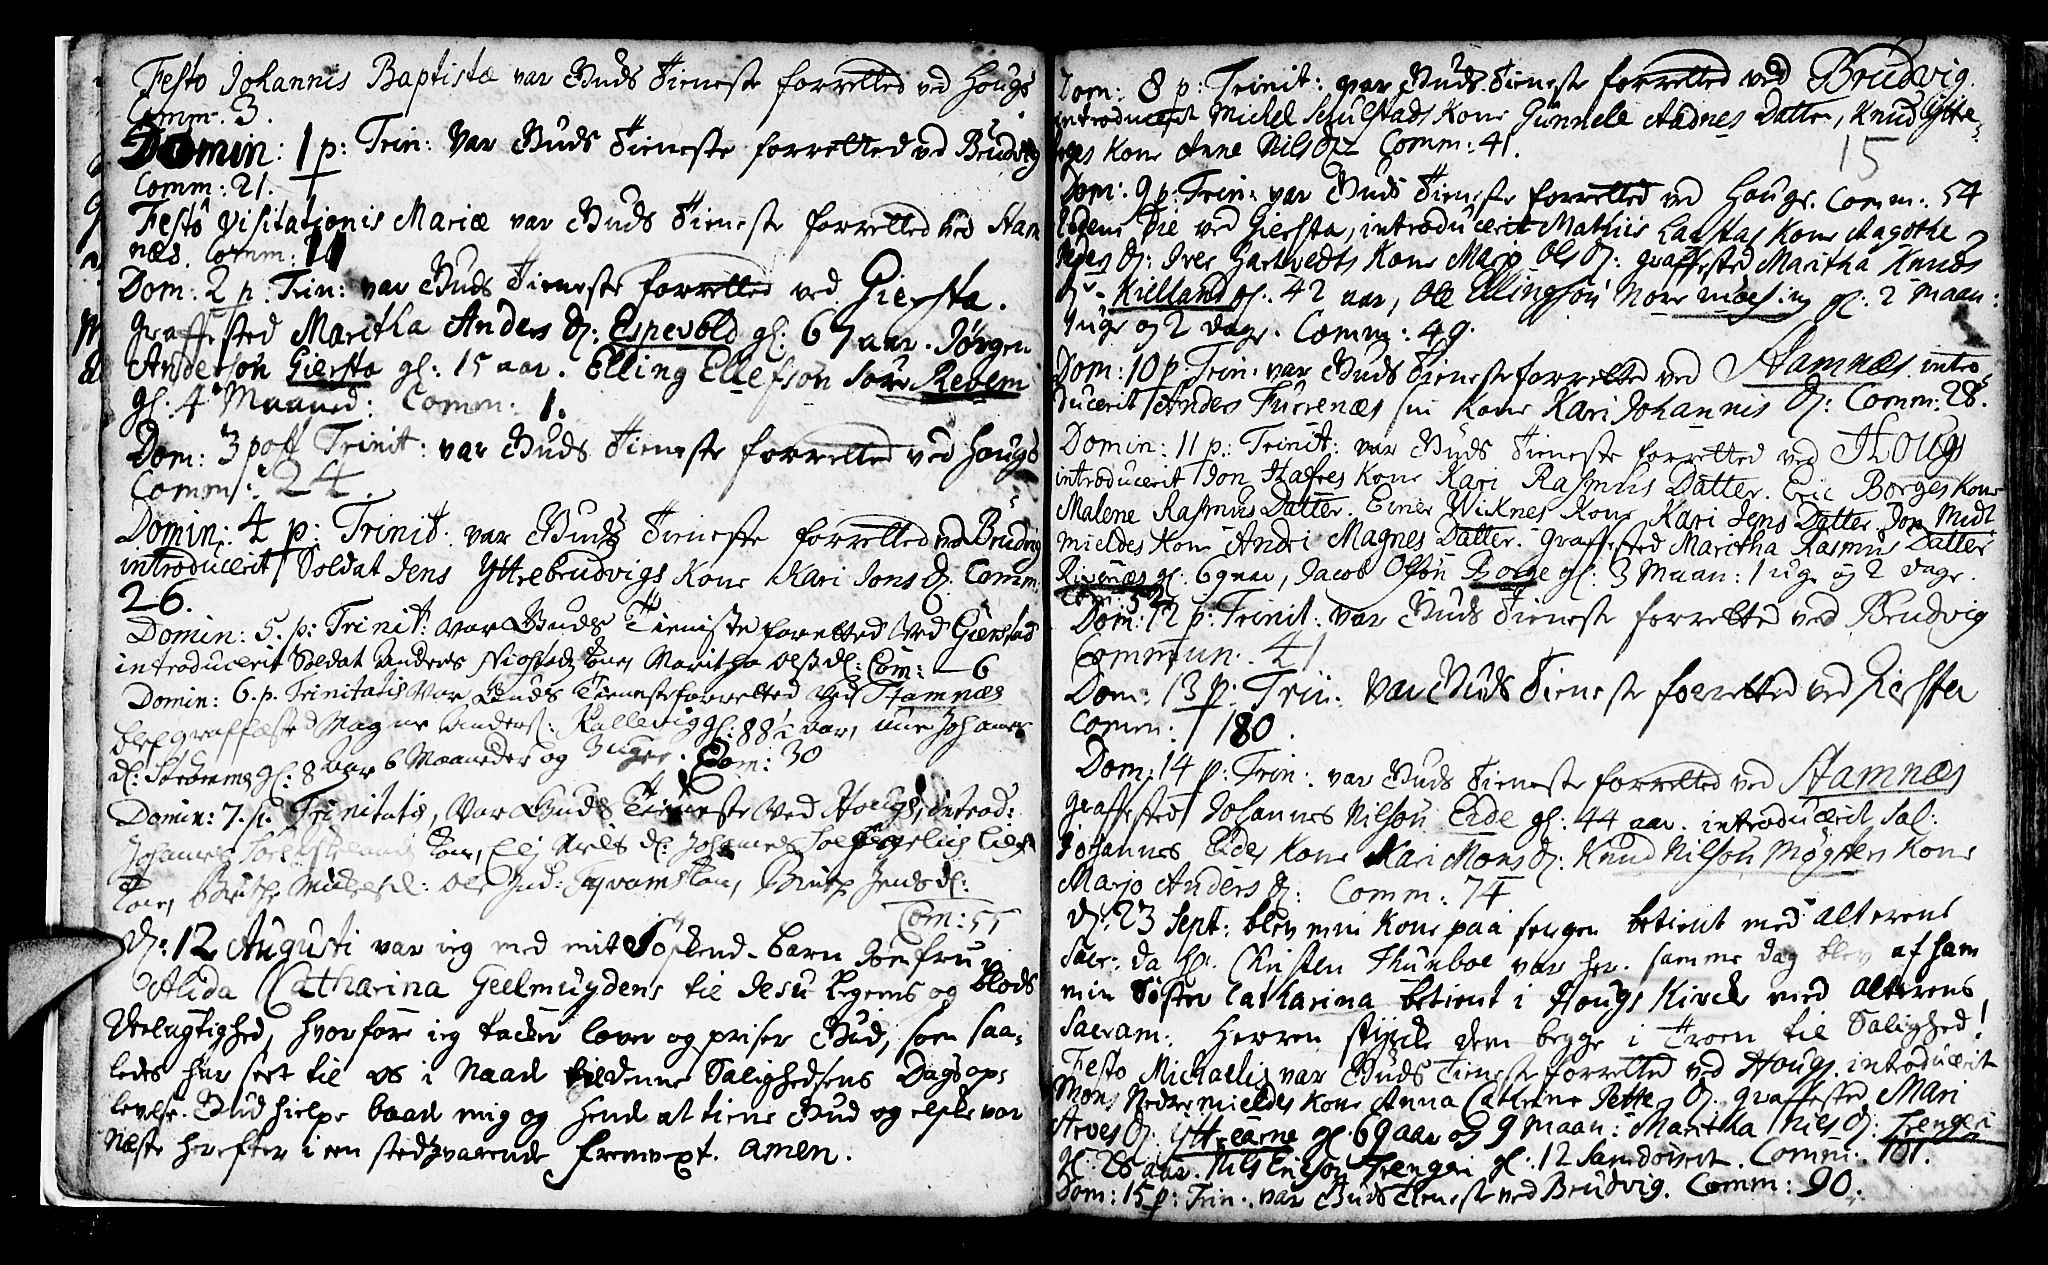 Festo Johannis Baptistæ var Guds Tieneste forretted ved Hougs
Comm. 3.
Domin: 1 p: Trin: Var Guds Tieneste forretted ved Brudvig
Comm: 21.
Festo Visitationis Mariæ var Guds Tieneste forretted ved Stam
næs. Comm: 11
Dom: 2 p: Trin: var Guds Tieneste forretted ved Giersta.
Graffested Maritha Anders D: Espevold gl: 67 aar. Jørgen
Anderson Giersta gl: 15 aar. Elling Ellefson Revem
gl. 4 Maaned: Comm: 1.
Dom: 3 post Trinit: var Guds Tieneste forretted ved Hougs
Comm: 24.
Domin: 4 p: Trinit: var Guds Tieneste forretted ved Brudvig
introducerit Soldat Jens Yttrebrudvigs Kone Kari Jons D. Comm:
26.
Domin: 5. p: Trinit: Var Guds Tieniste foretted Ved Gierstad
introducerit Soldat Anders Kone, Maritha Olss d: Com: 6
Domin: 6. p. Trinitatis Var Guds Tieneste forretted Ved Stamnæs
blef graffæsted Magne Anders: Kallevig gl: 88½ aar, Johannes
d: Strømme gl: 8 aar 6 Maaneder og 3 uger. Com: 30
Domin: 7. p. Trinitatis, Var Guds Tieneste Ved Hougs, introd:
Johannes Kone, Eli Nels d: Johannes
Kone, Brithe d: Ole Kone, Brithe Jens d:
Com: 55
D: 12 Augusti var ieg med mit Søskend-barn Jomfru
Alida Catharina Geelmuydens til Jesu Legems og blods
Deelagtighed, hvorfore ieg tacker lover og priser Gud, som saa-
ledes har seet til os i Naade til denne Salighedsens Dags op-
levelse. Gud hielpe baade mig og hende at tiene Gud og elske vor
Næste herefter i een stedzvarende fremvext. Amen.
Dom: 8 p: Trinit: var Guds Tieneste forretted ved Brudvig.
introducerit Michel Schulstads Kone Gunnele Aadnes Datter, Knud Yttre-
Kone Anne Nils Dtr Comm: 41.
15
Dom: 9 p: Trin: var Guds Tieneste forretted ved Hougs. Comm: 54
Die ved Giersta, introducerit Mathiis Kone Aagothe
D: Iver Hartvedts Kone Marjo Ols D: graffested Maritha Knuds
D. Kielland gl: 42 aar, Ole Ellingson gl: 2 maan:
1 uge og 2 dage. Comm: 49.
Dom: 10 p Trin: var Guds Tieneste forretted ved Stamnæs. intro-
ducerit Anders Furrenæs sin Kone Kari Johannis D: Comm: 28.
Domin: 11 p: Trinit: var Guds Tieneste forretted ved Hougs
introducerit Jon Kone Kari Rasmus Datter. Eric Borges Kone
Malene Rasmus Datter. Einer Wicknes Kone Kari Jens Datter. Jon Midt
mieldes Kone Andri Magnes Datter. Graffested Maritha Rasmus Datter
Rivenæs gl. 69 aar, Jacob Olson Borge gl: 3 Maan: 1 uge og 2 dage.
Dom: 12 p: Trinit: var Guds Tieneste forretted ved Brudvig
Commun: 41
Dom: 13 p: Trin: Var Guds Tieneste forretted ved Giersta
Comm: 180.
Dom: 14 p: Trin: var Guds Tieneste forretted ved Stamnæs
graffested Johannes Nilson Eide gl: 44 aar. introducerit Sal:
Johannes Eides Kone Kari Mons D: Knud Nilson Møgsters Kone
Marjo Anders D: Comm: 74
D: 23 Sept: blev min Kone paa sengen betient med Alterens
Sacr: da Hr. Christen Thunboe var her. samme dag blev af ham
min Søster Catharina betient i Hougs Kircke med Alterens
Sacram: Herren styrcke dem begge i Troen til Salighed!
Festo Michaelis var Guds Tieneste forretted ved Hougs. introducerit
Mons Nedremieldes Kone Anna Cathrine Petters D: graffested Mari
Arves D: gl. 69 aar og 9 maan: Maritha Nils D: Trengeri
gl: 28 aar. Nils Ericson Trengeri gl: 12 Comm: 101.
Dom: 15 p: Trin: var Guds Tieneste ved Brudvig. Comm: 90.